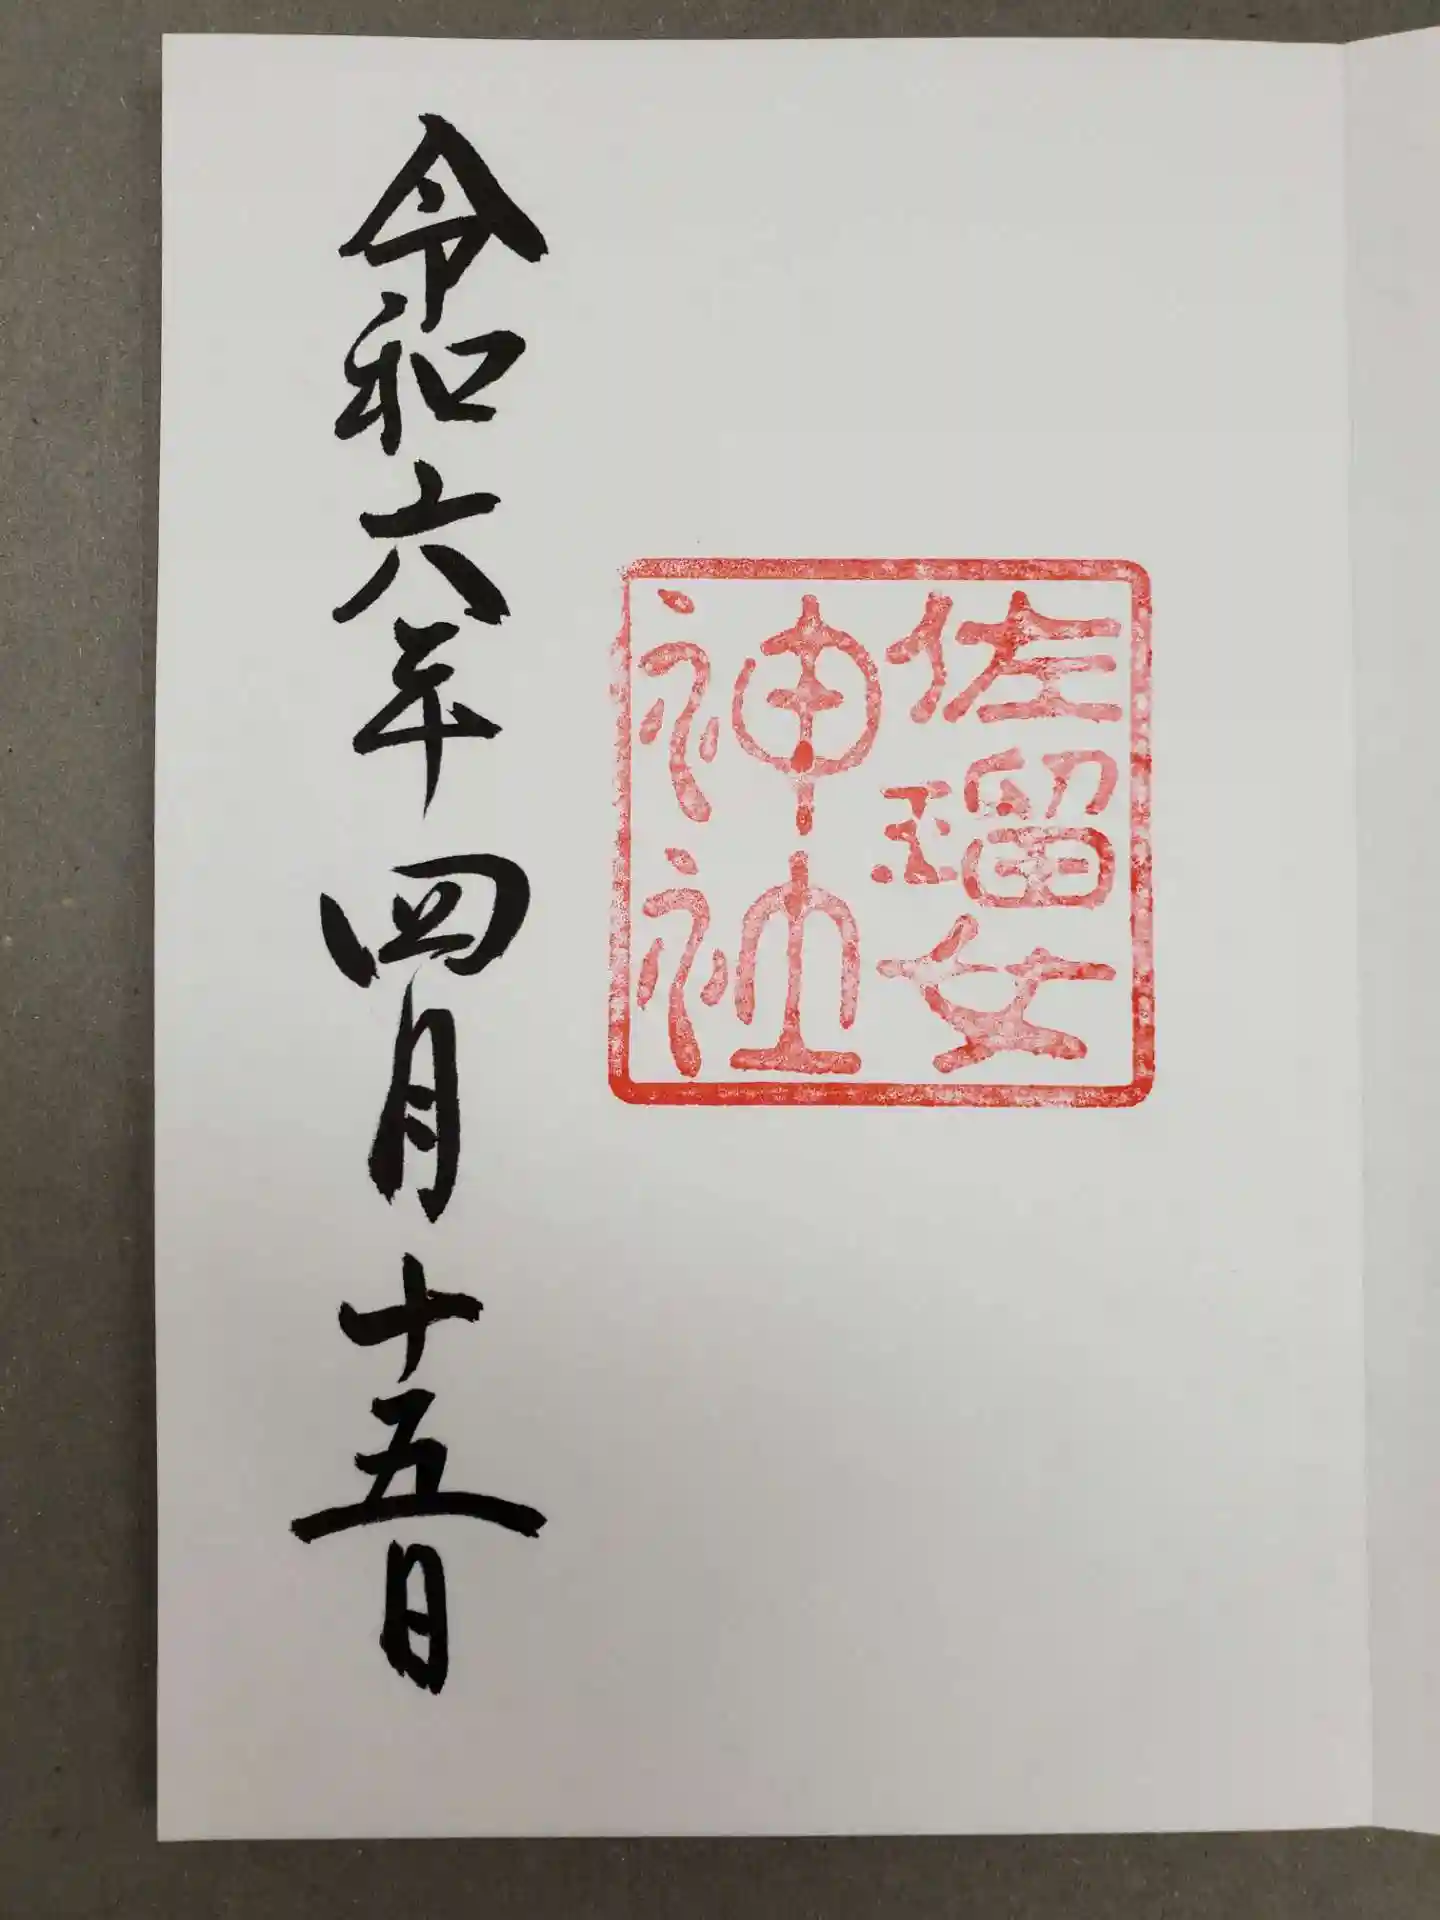 佐瑠女
神社
令和六年四月十五日